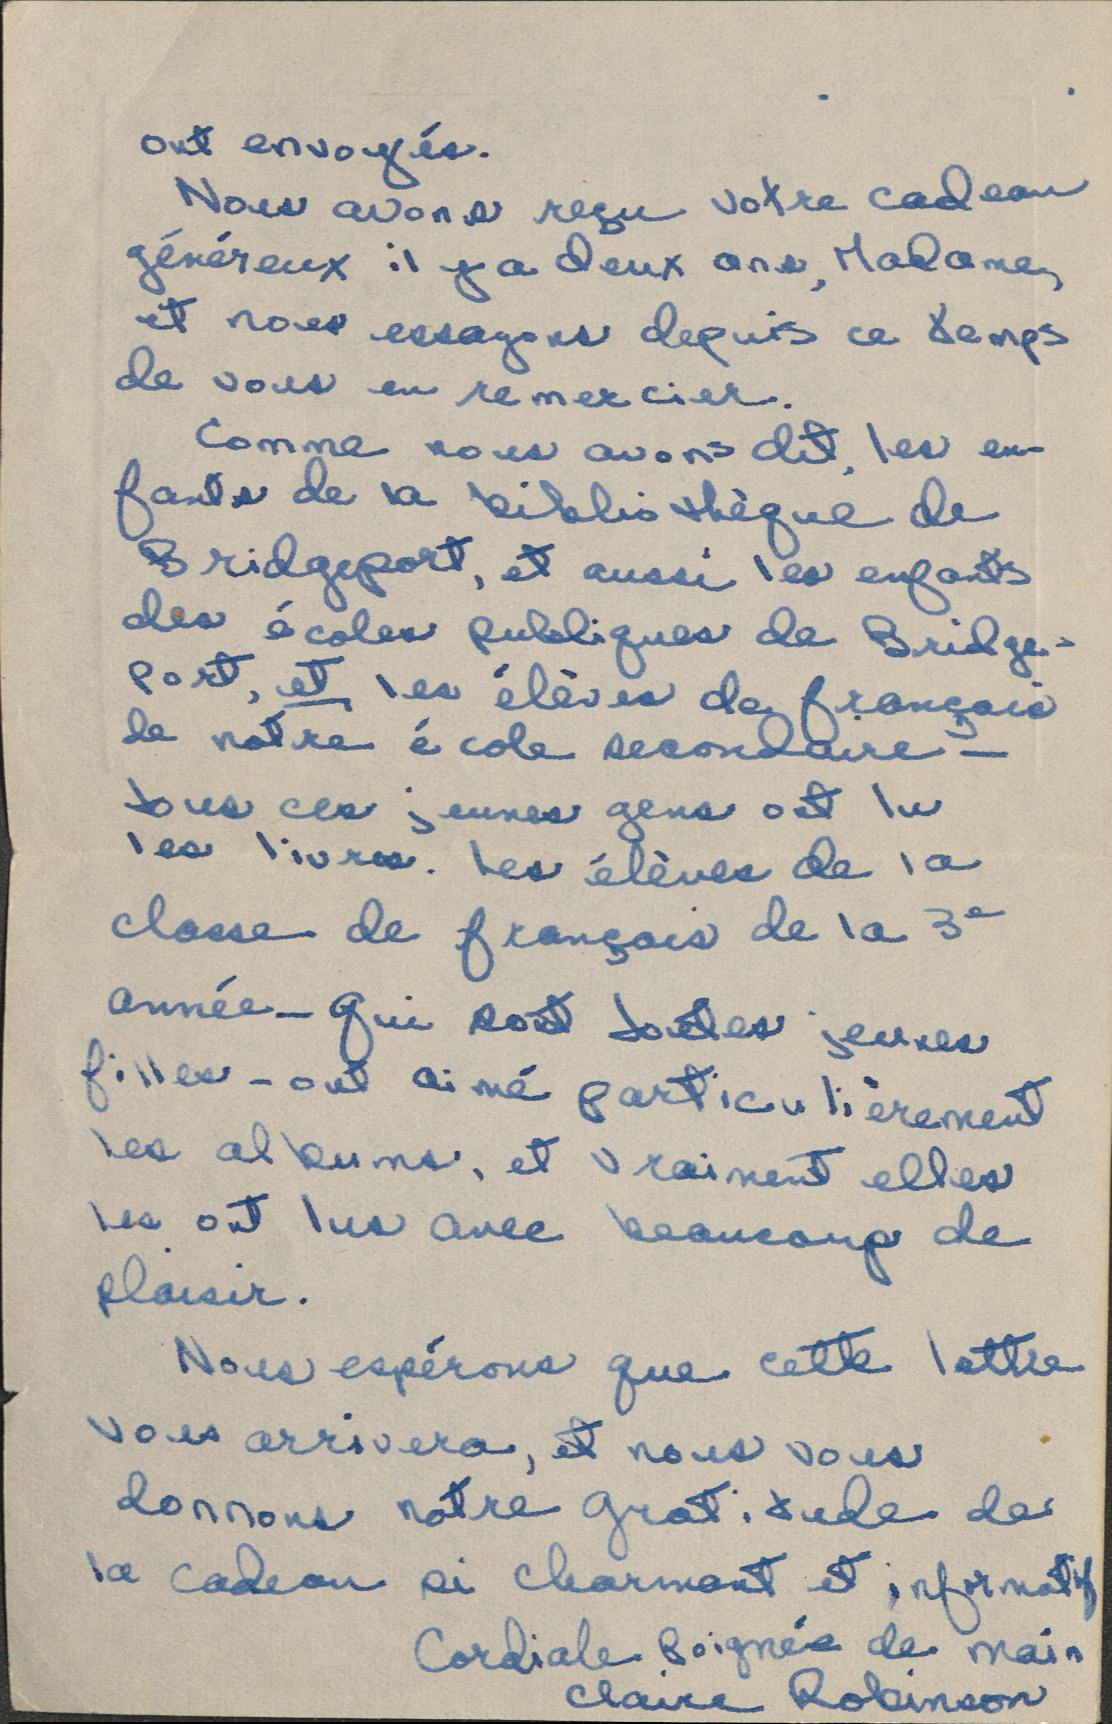 ont envoyés.
Nous avons reçu votre cadeau
généreux il y a deux ans, Madame,
et nous essayons depuis ce temps
de vous en remercier.
Comme nous avons dit, les en-
fants de la bibliothèque de
Bridgeport, et aussi les enfants
des écoles publiques de Bridge-
port, et les élèves de français
de nôtre école secondaire —
tous ces jeunes gens ont lu
les livres. Les élèves de la
classe de français de la 3e
année — qui sont toutes jeunes
filles — ont aimé particulièrement
les albums, et vraiment elles
les ont lus avec beaucoup de
plaisir.
Nous espérons que cette lettre
vous arrivera, et nous vous
donnons nôtre gratitude de
le cadeau si charmant et informatif
Cordiale Poignée de main
Claire Robinson